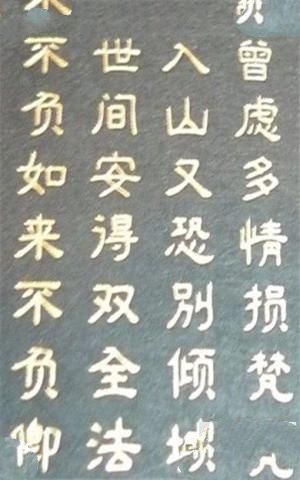 曾虑多情损梵
入山又恐别倾
世间安得双全法
不负如来不负卿